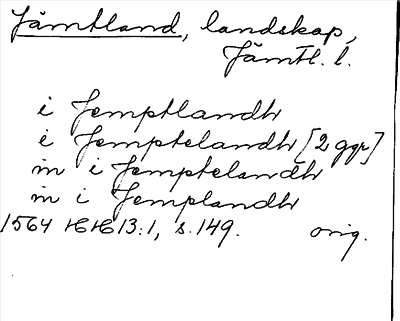 Jämtland, landskap,
Jämtl. l.
i Jemptlandh
i Jemptelandh [2 ggr]
in i Jemptelandh
in i Jemplandh
1564 HH 13:1, s. 149. orig.